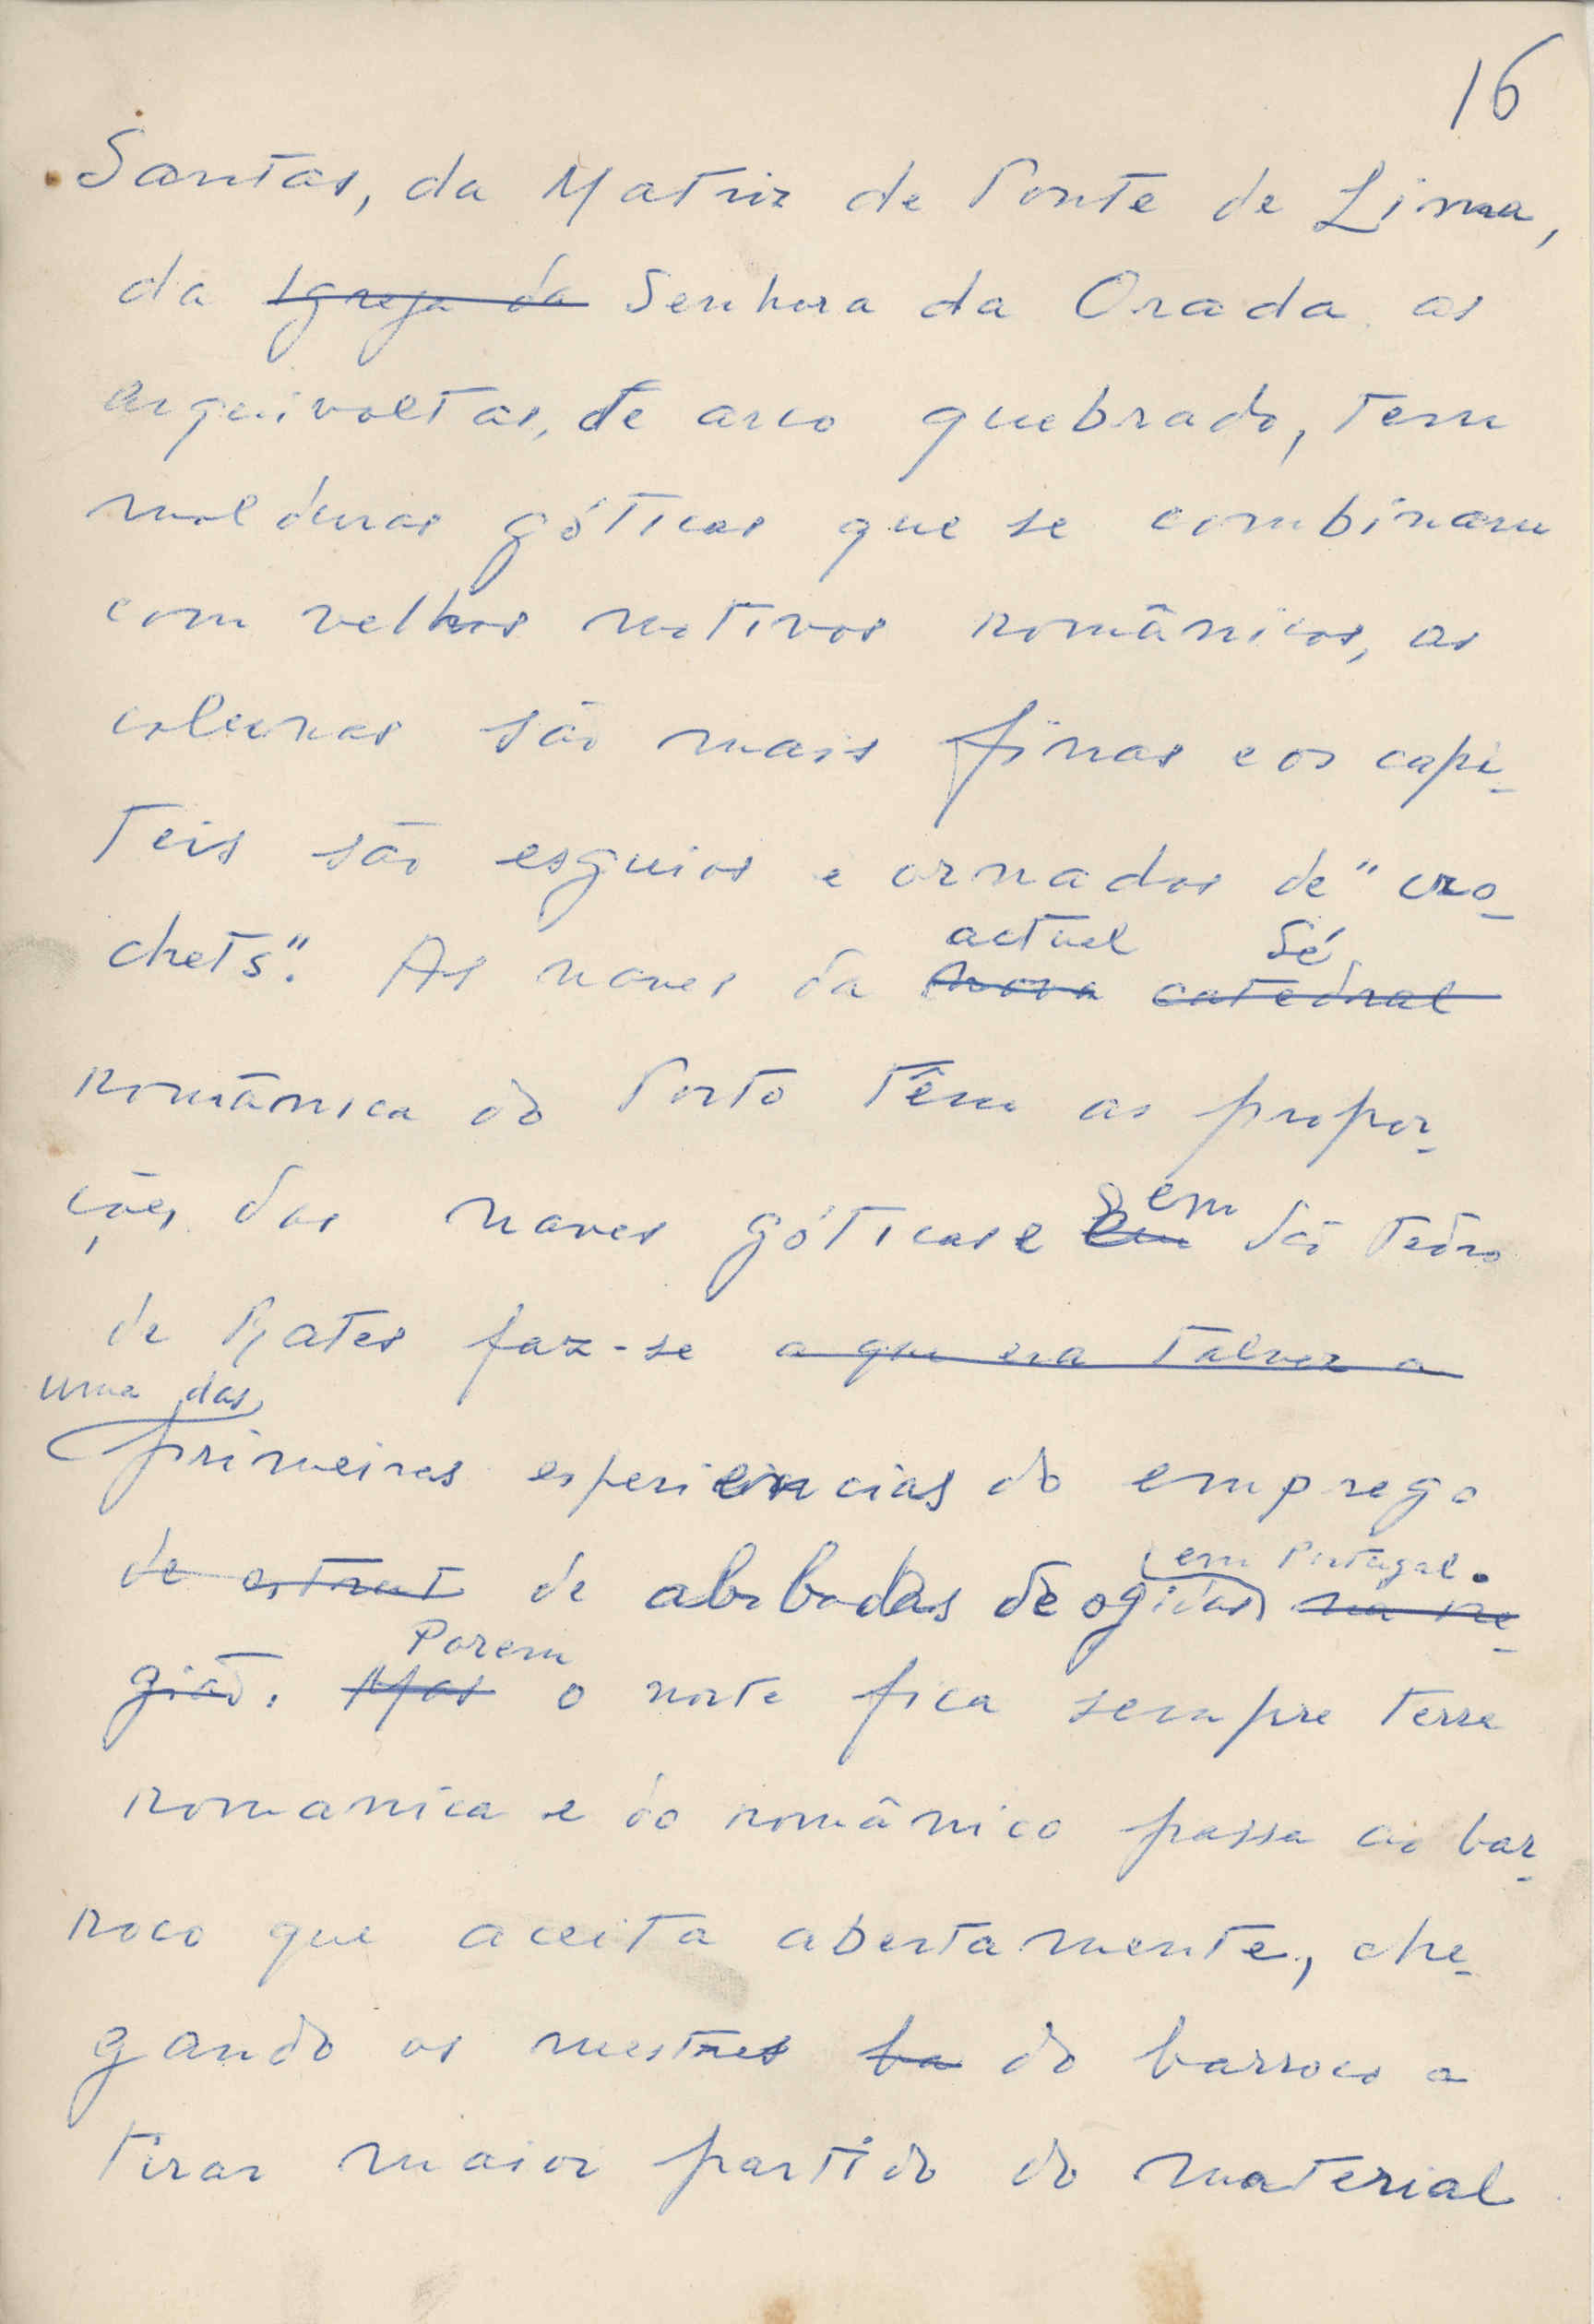 16
Santas, da Matriz de Ponte de Lima,
da Igreja da Senhora da Orada as
arquivoltas, de arco quebrado, tem
molduras góticas que se combinam
com velhos motivos românicos, as
colunas são mais finas e os capi-
teis são esguios e ornados de "cro-
actual Sé
chets". As naves da nova catedral
românica do Porto têm as propor-
ções das naves góticas e em
em São Pedro
de Rates faz-se a que era talvez a
uma das
primeiras experiencias do emprego
em Portugal.
de estrut de abobadas de ogivas na re-
Porem
gião. Mas o norte fica sempre terra
romanica e do românico passa ao bar-
roco que aceita abertamente, che-
gando os mestres ba do barroco a
tirar maior partido do material